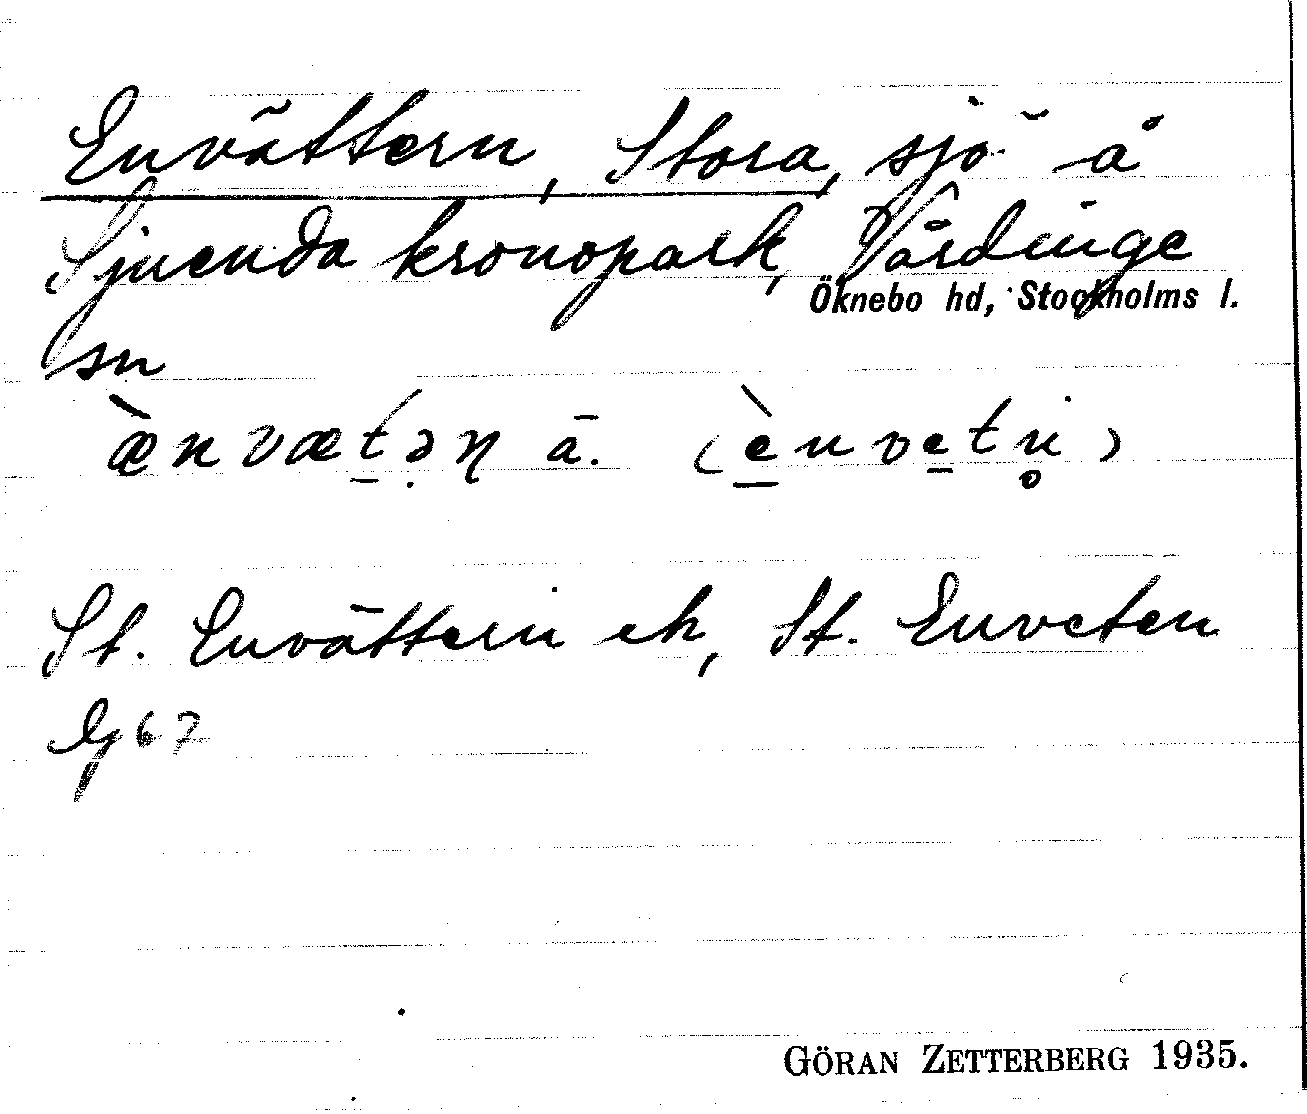 Envättern, Stora, sjö å
Sjuenda kronopark, Vårdinge
Öknebo hd, Stockholms l.
sn
æ̀nvæt̠əṇ ā. (è̠nve̠tn̥)
St. Envättern ek, St. Enveten
lg 67
GÖRAN ZETTERBERG 1935.